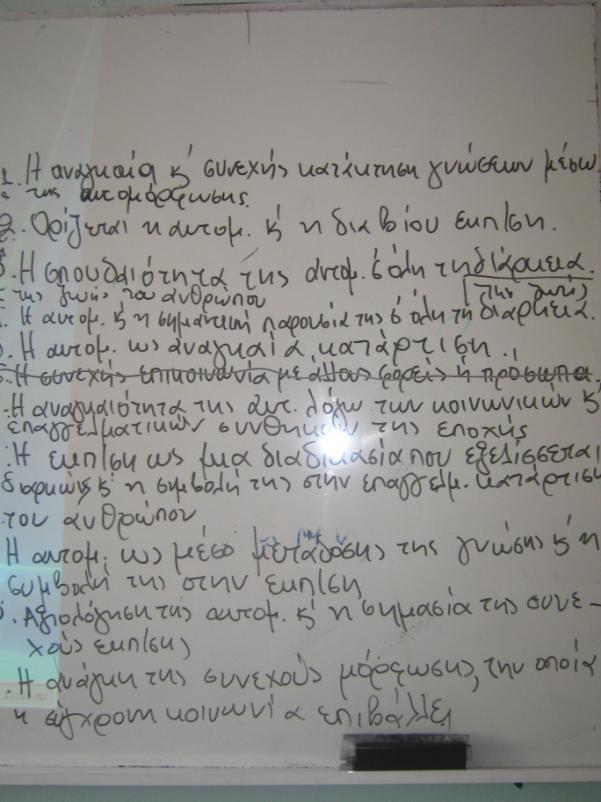 1. Η αναγκαία κ' συνεχής κατάκτηση γνώσεων μέσω
της αυτομόρφωσης.
2. Ορίζεται η αυτομ. κ' η δια βίου εκπ/ση.
. Η σπουδαιότητα της αυτομ. σ' όλη τη διάρκεια.
της ζωής του ανθρώπου της ζωής
. Η αυτομ. κ' η σημαντική παρουσία της σ' όλη τη διάρκεια.
. Η αυτομ. ως αναγκαία κατάρτιση.
. Η συνεχής επικοινωνία με άλλους φορείς ή πρόσωπα
. Η αναγκαιότητα της αυτ. λόγω των κοινωνικών κ'
επαγγελματικών συνθηκών της εποχής
. Η εκπ/ση ως μια διαδικασία που εξελίσσεται
διαρκώς κ' η συμβολή της στην επαγγελμ. κατάρτιση
του ανθρώπου
Η αυτομ. ως μέσο μετάδοσης της γνώσης κ' η
συμβολή της στην εκπ/ση
. Αξιολόγηση της αυτομ. κ' η σημασία της συνε-
χούς εκπ/σης
Η ανάγκη της συνεχούς μόρφωσης, την οποία
η σύγχρονη κοινωνία επιβάλλει